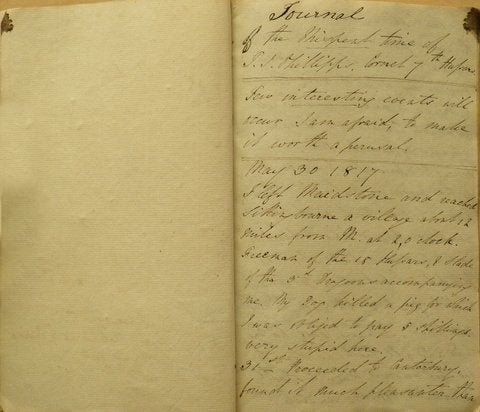 Journal
of the Mispent time of
Phillipps, Cornet 7th Hussars
Few interesting events will
occur I am afraid, to make
it worth a perusal.
May 30 1817
I left Maidstone and reached
Sittingbourne a village about 12
miles from M. at 2,o clock.
Freeman of the 15 Hussars, & Slade
of the Dragoons accompanying
me. My Dog killed a pig for which
I was obliged to pay 8 shillings.
very stupid here.
31st Proceeded to Canterbury,
found it much pleasanter than